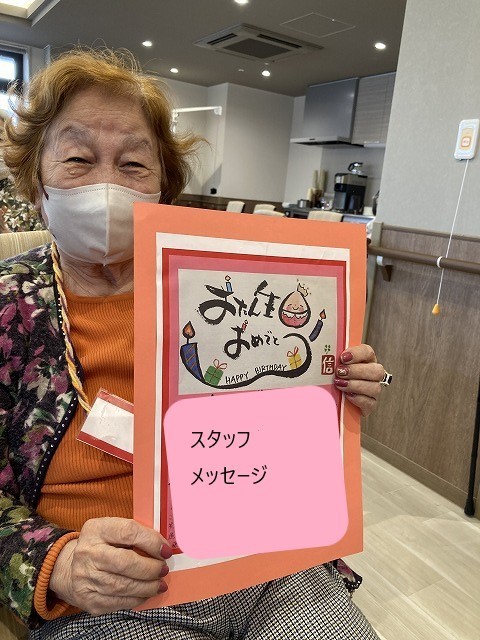 おたん生日
おめでとう
HAPPY BIRTHDAY
信
スタッフ
メッセージ